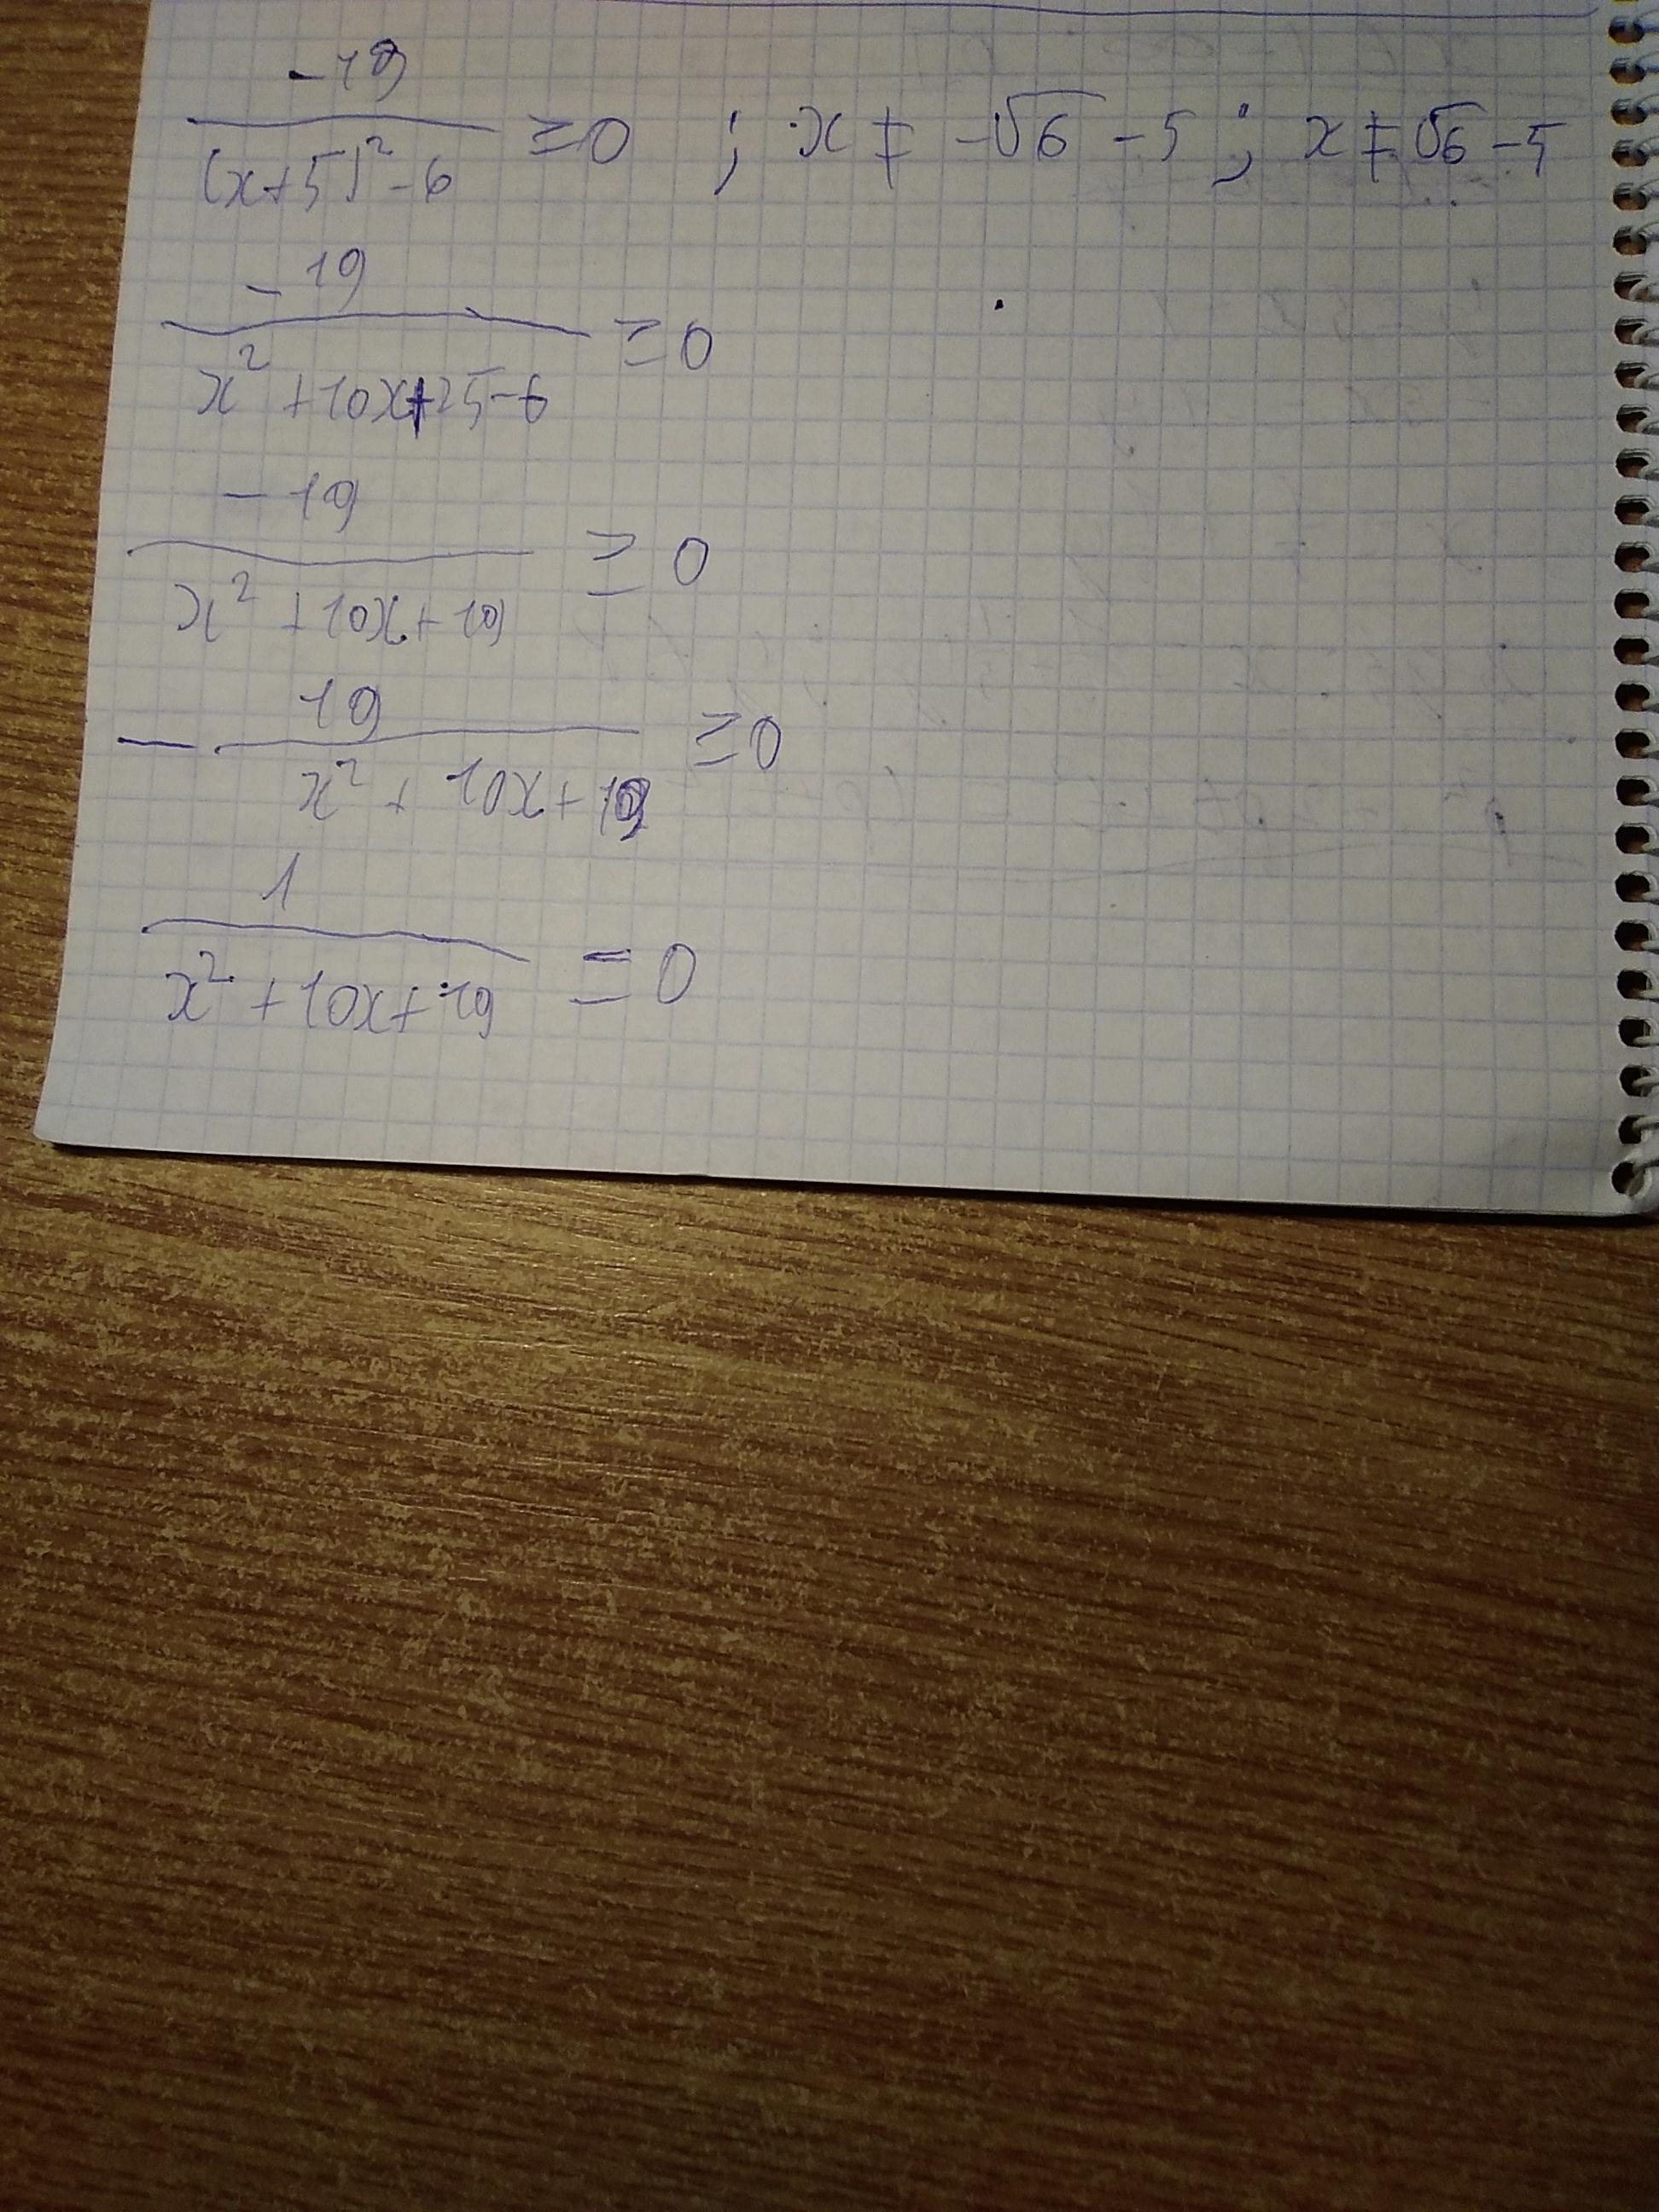 -19/((x+5)²-6) ≥ 0 ; x ≠ -√6 - 5 ; x ≠ √6 - 5
-19/(x²+10x+25-6) ≥ 0
-19/(x²+10x+19) ≥ 0
- 19/(x²+10x+19) ≥ 0
1/(x²+10x+19) ≤ 0